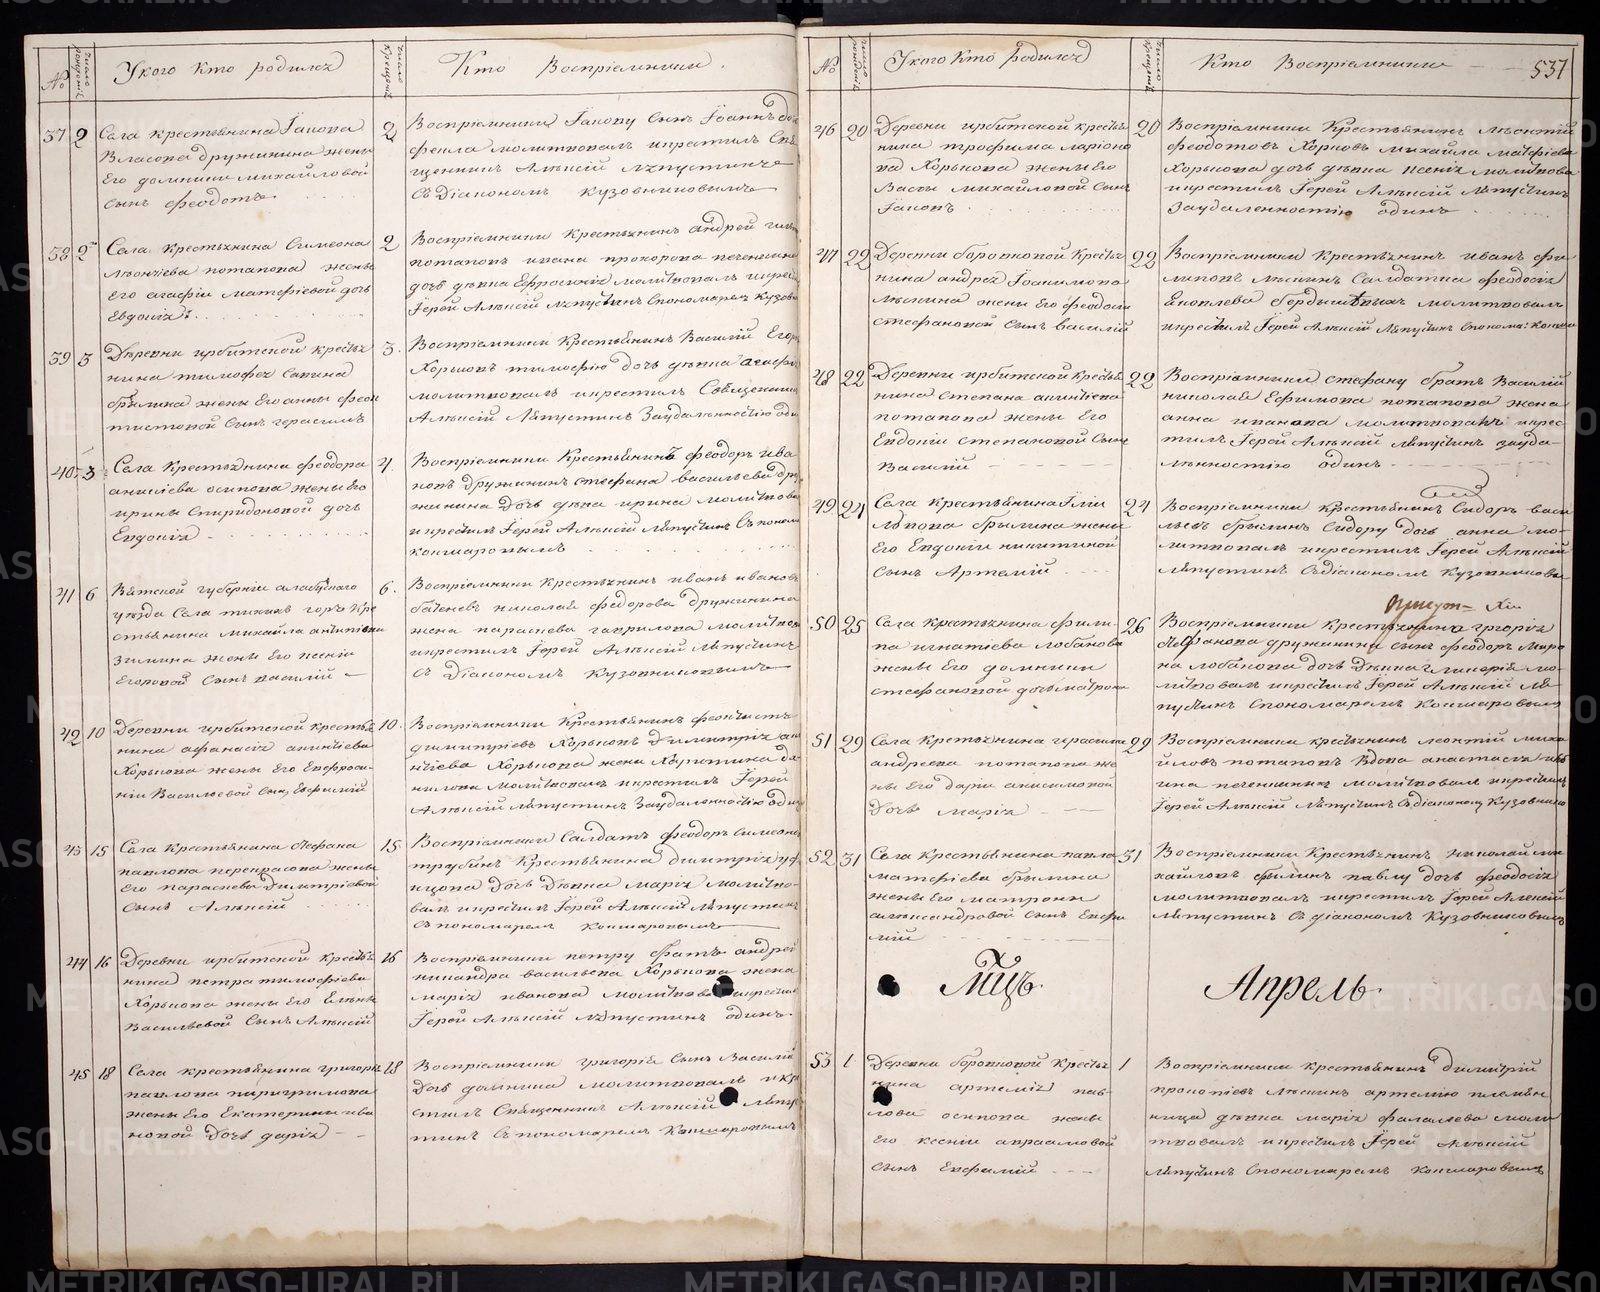 №
Число рожденія
У кого кто родился
Число крещенія
Кто Воспріемники.
37 2 Села крестьянина Іакова
Власова дружинина жены
Его домники михайловой
сынъ феодотъ
2 Воспріемники Іакову сынъ Іоаннъ
молитвовалъ и крестилъ Свя
щенникъ Алексій Лепустинъ
съ Діакономъ Кузовниковымъ
38 2 Села крестьянина Симеона
леонтіева потапова жены
Его агафіи матфіевой дочь
Евдокія
2 Воспріемники крестьянинъ андрей
потаповъ ивана прохорова печенкина
дочь девка Ефросинія молитвовалъ и крес
Іерей Алексій Лепустинъ Спономарем Кузов
39 3 Деревни ирбитской кресть
нина тимофея Савина
брылина жены Его анны феок
тистовой сынъ герасимъ
3. Воспріемники Крестьянинъ Василій Егор
Хорьковъ тимофею дочь девка агафі
молитвовалъ и крестилъ Священник
Алексій Лепустинъ Заудаленностію оди
40 3 Села Крестьянина феодора
осипова жены Его
ирины Спиридоновой дочь
Евдокія
4. Воспріемники Крестьянинъ феодоръ ива
новъ дружининъ стефана васильева дру
жинина дочь девка ирина молитвова
и крестилъ Іерей Алексій Лепустинъ Съпоном
коншаровымъ
41 6 Вятской губерніи алабужаго
уезда Села тихихъ горъ Кре
стьянина михаила антипина
зимина жены Его ксеніи
Егоровой Сынъ василій
6. Воспріемники Крестьянинъ иванъ иванов
николая федорова дружинина
жена параскева гаврилова молитвов
и крестилъ Іерей Алексій Лепустинъ
съ Діакономъ Кузовниковымъ
42 10 Деревни ирбитской крестья
нина афанасія
Хорькова жены Его Евфроси
ніи Васильевой Сынъ Евфимій
10. Воспріемники Крестьянинъ феоктистъ
димитріевъ Хорьковъ Димитрія
Хорькова жена Харитина да
нилова молитвовалъ и крестилъ Іерей
Алексій Лепустинъ Заудаленностію один
43 15 Села Крестьянина Стефана
павлова перекрасова жены
Его параскевы Димитріевой
сынъ Алексій
15. Воспріемники Салдатъ феодоръ Симеоно
трубинъ Крестьянина димитрія
дочь девка марія молитво
валъ и крестилъ Іерей Алексій Лепустин
Съ пономаремъ Коншаровымъ
44 16 Деревни ирбитской крестья
нина петра тимофеева
Хорькова жены Его Елены
Васильевой Сынъ Алексій
16 Воспріемники петру братъ андрей
никандра васильева Хорькова жена
марія иванова молитвова и крестил
Іерей Алексій Лепустинъ одинъ
45 18 Села крестьянина григорья
павлова
жены Его Екатерины ива
новой дочь дарія
18 Воспріемники григорія сынъ Василій
Дочь домника молитвовалъ и кре
стилъ Священникъ Алексій Лепус
тинъ Съ пономаремъ Коншаровымъ
№
Число рожденія
У кого кто родился
Число крещенія
Кто Воспріемники
537
46 20 Деревни ирбитской крестья
нина трофима ларіоно
ва Хорькова жены Его
Васы михайловой Сынъ
Іаковъ
20 Воспріемники Крестьянинъ леонтій
феодотовъ Хорковъ михайла матфіева
Хорькова дочь девка ксенія молитвова
и крестилъ Іерей Алексій Лепустинъ
Заудаленностію одинъ
47 22 Деревни боровковой Кресть
нина андрея Іоакимова
лескина жены Его феодосіи
стефановой сынъ василій
22 Воспріемники Крестьянинъ иванъ фи
липовъ лескинъ Салдатка феодосія
Яковлева бердышевыхъ молитвовалъ
и крестилъ Іерей Алексій Лепустинъ Спонома: Конша
48 22 Деревни ирбитской крестья
нина Степана
потапова жены Его
Евдокіи степановой Сынъ
Василій
22 Воспріемники стефану братъ Василій
николая Ефимова потапова жена
анна иванова молитвовалъ и крес
тилъ Іерей Алексій Лепустинъ зауда-
ленностію одинъ
49 24 Села Крестьянина Іліи
львова брылина жены
Его Евдокіи никитиной
Сынъ Артемій
24 Воспріемники крестьянинъ Сидоръ васи
льевъ брылинъ Сидору дочь анна мо-
литвовалъ и крестилъ Іерей Алексій
Лепустинъ Съдіакономъ Кузовниковы
50 25 Села крестьянина фили-
па игнатіева лобанова
жены Его домники
стефановой дочь матрона
26 Воспріемники крестьянина григорія
стефанова дружинина сынъ феодоръ миро
на лобанова дочь девка гликерія мо-
литвовалъ и крестилъ Іерей Алексій Ле-
пустинъ Спономаремъ Коншаровым
51 29 Села Крестьянина герасима
андреева потапова же
ны Его дарьи анисимовой
Дочь марія
29 Воспріемники крестьянинъ леонтій миха
йловъ потаповъ Вдова анастасія
ина печенкина молитвовалъ и крестилъ
Іерей Алексій Лепустинъ Съдіакономъ Кузовнико
52 31 Села Крестьянина павла
матфіева брылина
жены Его матроны
александровой Сынъ Евфи
мій
31 Воспріемники Крестьянинъ николай ми
хайловъ филинъ павлу дочь феодосія
молитвовалъ и крестилъ Іерей Алексій
Лепустинъ Съ діакономъ Кузовниковымъ
Мцъ. Апрель.
53 1 Деревни боровковой Кресть
нина артемія пав-
лова осипова жены
Его ксеніи авраамовой
Сынъ Евфимій
1 Воспріемники крестьянинъ Димитрій
прокопіевъ лескинъ артемію племян
ница девка марія фалалеева моли
твовалъ и крестилъ Іерей Алексій
Лепустинъ Спономаремъ Коншаровымъ
METRIKI.GASO-URAL.RU